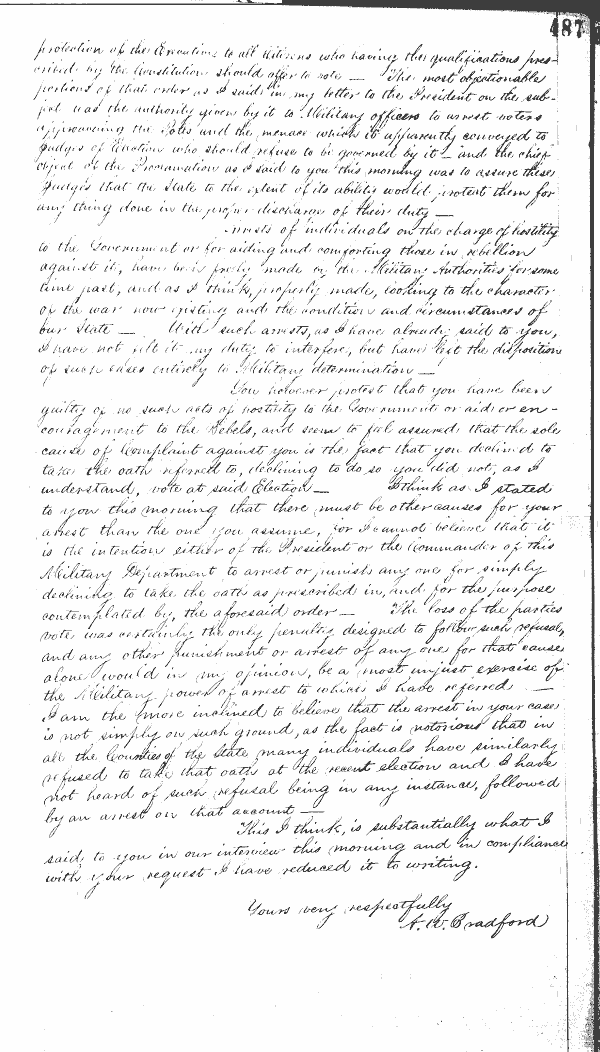 487
protection of the Executive to all Citizens who having the qualifications pres-
cribed by the Constitution should offer to vote — The most objectionable
portions of that order as I said in my letter to the President on the sub-
ject was the authority given by it to Military officers to arrest voters
approaching the Poles and the menace which it apparently conveyed to
Judges of Election who should refuse to be governed by it — and the chief
object of the Proclamation as I said to you this morning was to assure these
Judges that the State to the extent of its ability would protect them for
any thing done in the proper discharge of their duty —
Arrests of individuals on the charge of hostility
to the Government or for aiding and comforting those in rebellion
against it, have been freely made by the Military Authorities for some
time past, and as I think, properly made, looking to the character
of the war now existing and the condition and circumstances of
our State — With such arrests, as I have already said to you,
I have not felt it my duty to interfere, but have left the disposition
of such cases entirely to Military determination —
You however protest that you have been
guilty of no such acts of hostility to the Government or aid or en-
couragement to the Rebels, and seem to feel assured that the sole
cause of Complaint against you is the fact that you declined to
take the oath referred to, declining to do so you did not, as I
understand, vote at said Election — I think as I stated
to you this morning that there must be other causes for your
arrest than the one you assume, for I cannot believe that it
is the intention either of the President or the Commander of this
Military Department to arrest or punish any one for simply
declining to take the oath as prescribed in, and for the purpose
contemplated by, the aforesaid order — The loss of the parties
vote was certainly the only penalty designed to follow such refusal,
and any other punishment or arrest of any one for that cause
alone would in my opinion, be a most unjust exercise of
the Military power of arrest to which I have referred —
I am the more inclined to believe that the arrest in your case
is not simply on such ground, as the fact is notorious that in
all the Counties of the State many individuals have similarly
refused to take that oath at the recent election and I have
not heard of such refusal being in any instance, followed
by an arrest on that account —
This I think, is substantially what I
said to you in our interview this morning and in compliance
with your request I have reduced it to writing.
Yours very respectfully
A. W. Bradford